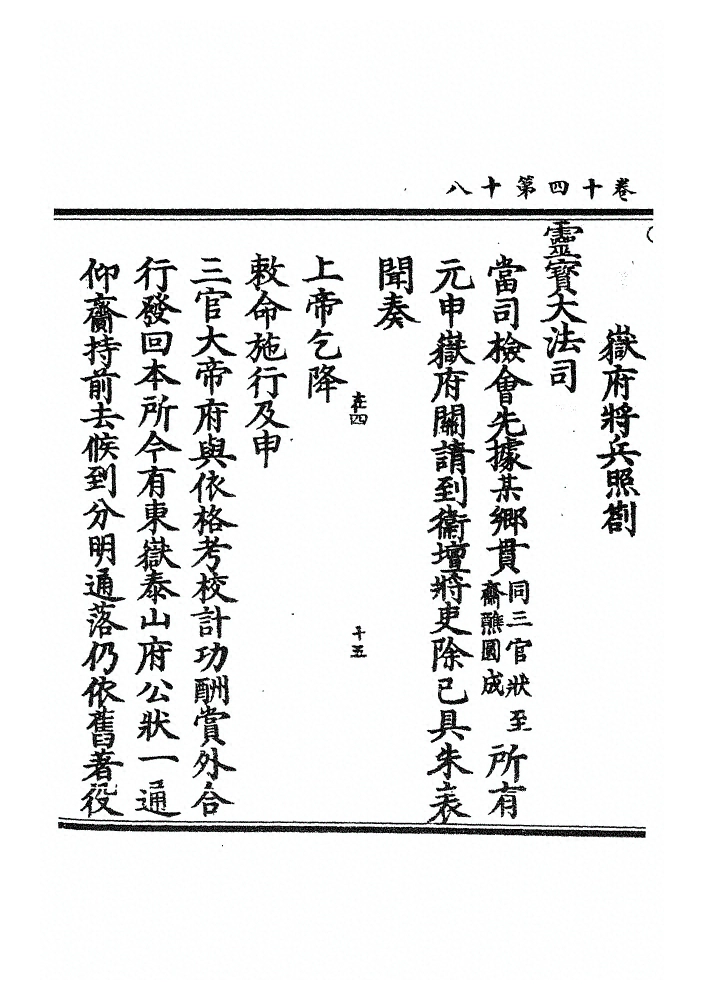 卷十四第十八
嶽府將兵照劄
靈寶大法司
當司檢會先據某鄉貫同三官狀至齋醮圓成所有
元申嶽府關請到衞壇將吏除已具朱表
聞奏
在四
十五
上帝乞降
敕命施行及申
三官大帝府與依格考校計功酬賞外合
行發回本所今有東嶽泰山府公狀一通
仰齎持前去候到分明通落仍依舊著役